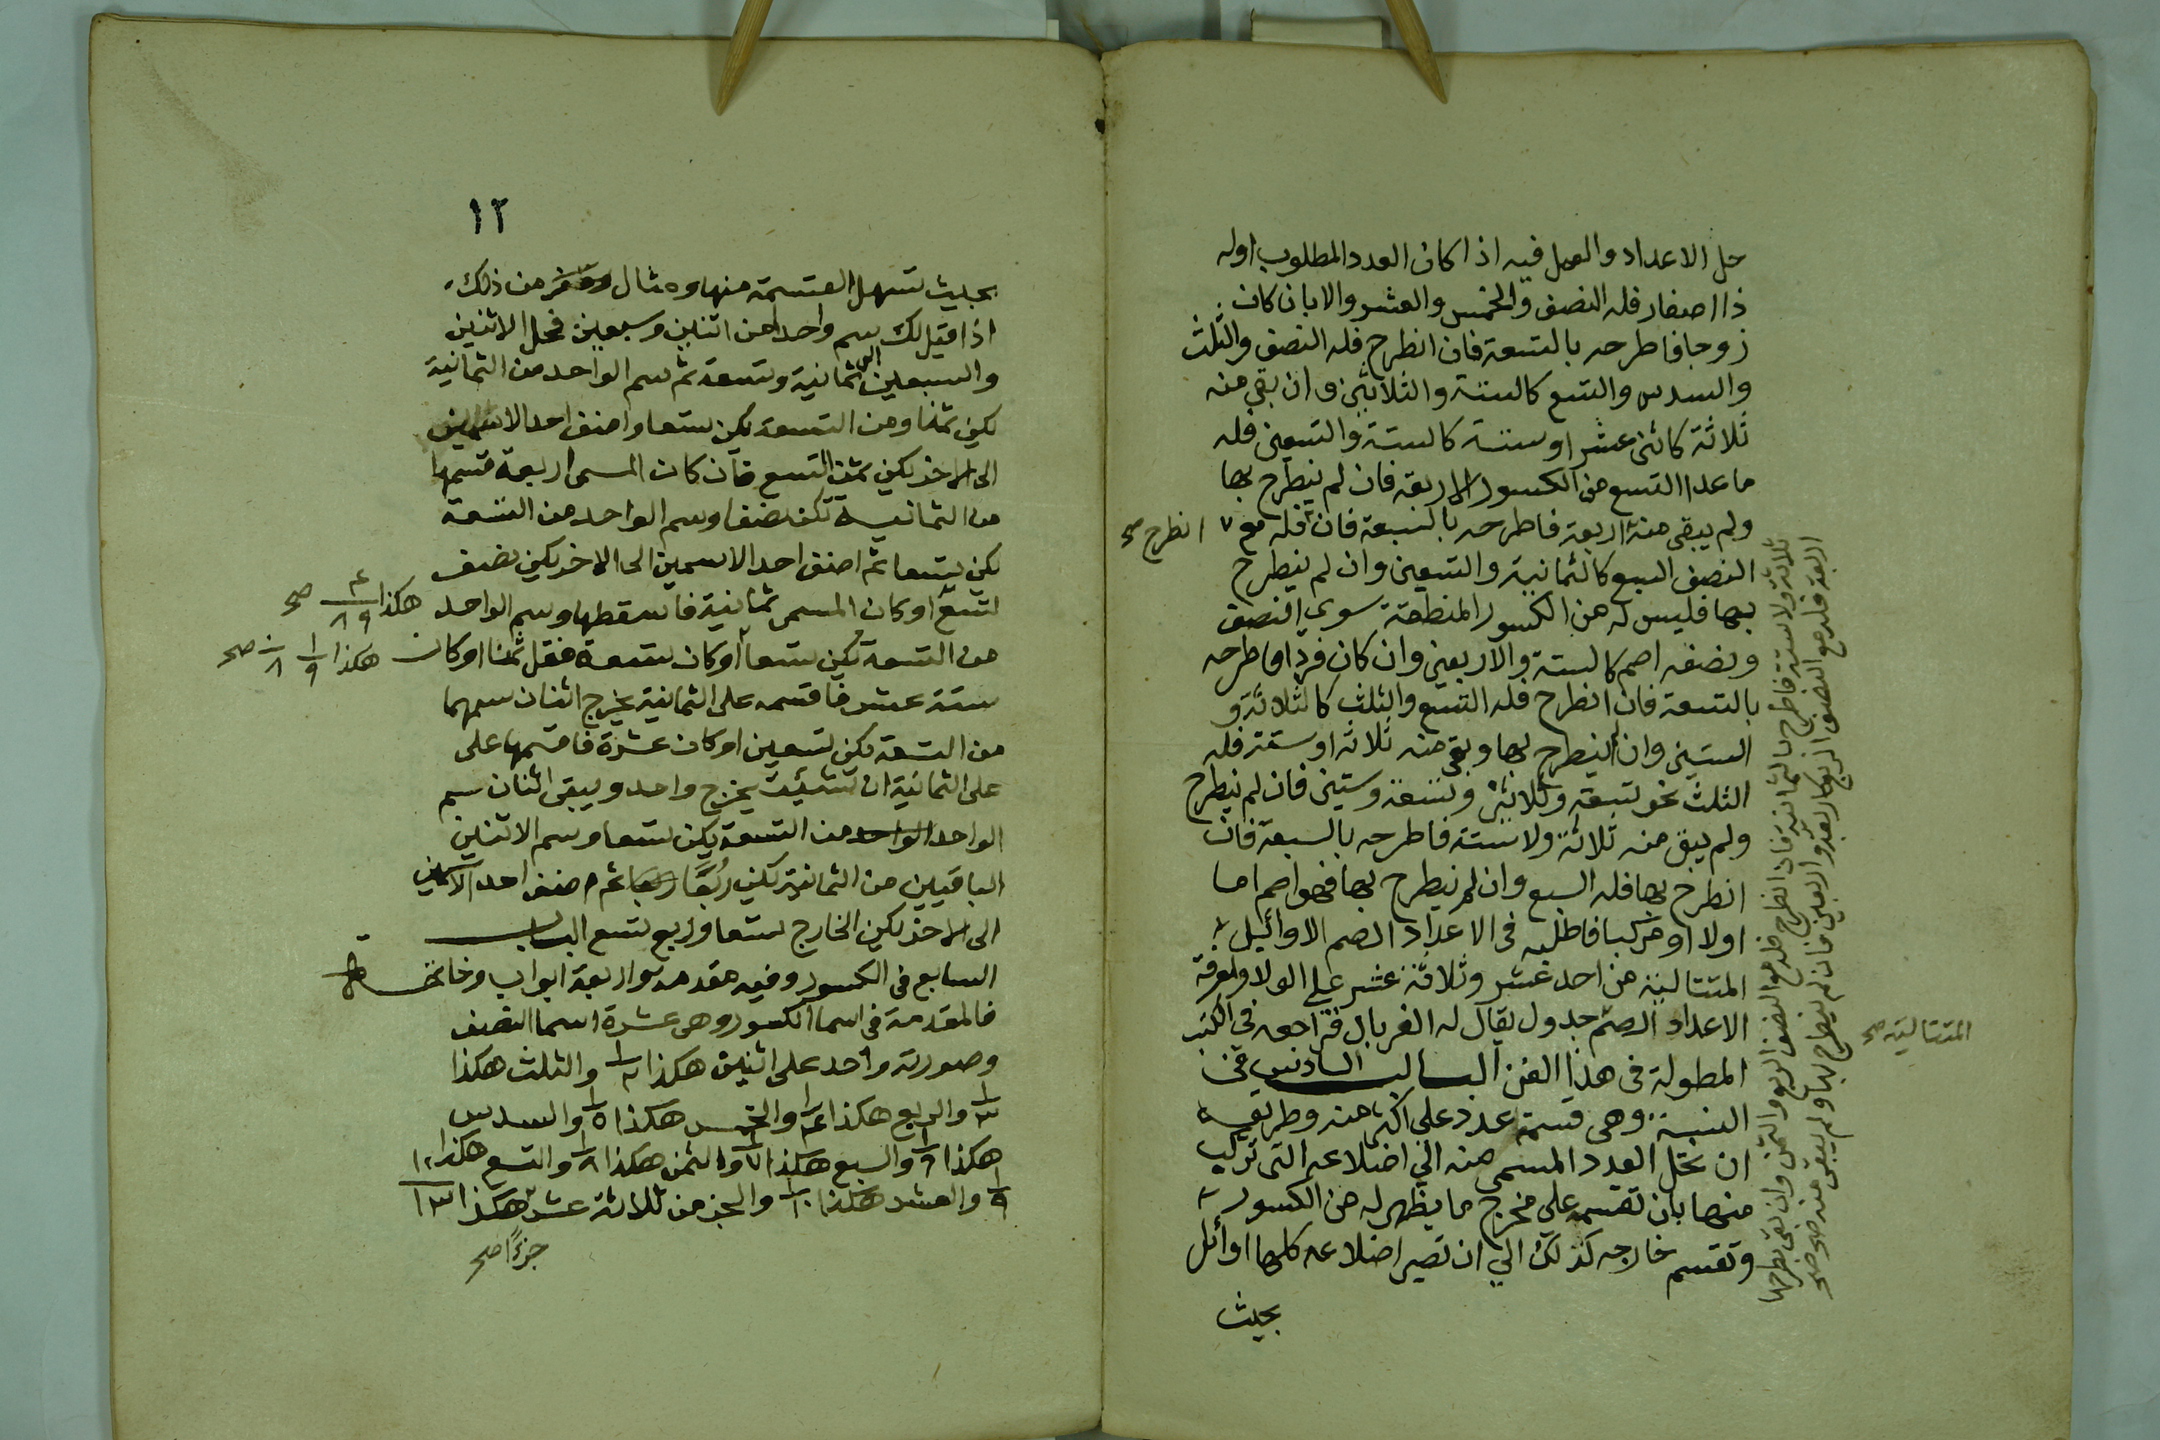 حل الاعداد والعمل فيه اذا كان العدد المطلوب اوله
ذا اصفار فله النصف والخمس والعشر والا بان كان
زوجا فاطرحه بالتسعة فان انطرح فله النصف والثلث
والسدس والتسع كالستة والثلاثين وان بقي منه
ثلاثة كاثنى عشر او ستة كالستة والتسعين فله
ما عدا التسع من الكسور الاربعة فان لم ينطرح بها
ولم يبقى منه اربعة فاطرحه بالسبعة فان فله مع
انطرح صح
النصف السبع كالثمانية والتسعين وان لم ينطرح
بها فليس له من الكسور المنطقة سوى النصف
ونصفه اصم كالستة والاربعين وان كان فردا فاطرحه
بالتسعة فان انطرح فله التسع والثلث كالثلاثة و
الستين وان لم ينطرح بها وبقي منه ثلاثة او ستة فله
الثلث نحو تسعة وثلاثين وتسعة وستين فان لم ينطرح
ولم يبق منه ثلاثة ولا ستة فاطرحه بالسبعة فان
انطرح بها فله السبع وان لم ينطرح بها فهو اصم اما
اولا او مركبا فاطلبه فى الاعداد الصم الاوائيل
المتتالية من احد عشر وثلاثة عشر على الولا ولمعرفة
المتتالية صح
الاعداد الصم جدول يقال له الغربال فراجعه فى الكتب
المطولة فى هذا الفن الباب السادس فى
النسبة وهى قسمة عدد على اكثر منه وطريقه
ان تحل العدد المسمى منه الي اضلاعه التى تركب
منها بان تقسمه على مخرج ما يظهر له من الكسور
وتقسم خارجه كذلك الي ان تصير اضلاعه كلها اوائل
بحيث
ثلاثة ولا ستة فاطرح بالثمانية فان انطرح فله مع النصف الربع والثمن وان بقى بطرحها
اربعة فله مع النصف الربع كاربعة واربعين فان لم ينطرح بها ولم يبقى منه صح صح
١٢
بحيث تسهل القسمة منها ومثال من ذلك
اذا قيل لك سم واحدا من اثنين وسبعين فحل الاثنين
والسبعين الى ثمانية وتسعة ثم سم الواحد من الثمانية
يكن ثمنا ومن التسعة يكن تسعا واضف احد الاسمين
الى الاخر يكن ثمن التسع فان كان المسمى اربعة فسمها
من الثمانية تكن نصفا وسم الواحد من التسعة
يكن تسعا ثم اضف احد الاسمين الى الاخر يكن نصف
لتسع او كان المسمى ثمانية فاسقطها وسم الواحد
هكذا ٤ ٨٩ صح
من التسعة يكن تسعا او كان تسعة فقل ثمنا او كان
هكذا ١ ٩ ٨ صح
ستة عشر فاقسمه على الثمانية يخرج اثنان سمهما
من التسعة يكن تسعين او كان عشرة فاقسمها على
على الثمانية ان شئيت يخرج واحد ويبقى اثنان سم
الواحد الواحد من التسعة يكن تسعا وسم الاثنين
الباقيين من الثمانية تكن ربعا ربعا ثم اضف احد الاسمين
الى الاخر يكن الخارج تسعا وربع تسع الباب
السابع فى الكسور وفيه مقدمة واربعة ابواب وخاتمة
فالمقدمة فى اسما الكسور وهى عشرة اسما النصف
وصورته واحد على اثنين هكذا ١ ٢ والثلث هكذا
١ ٣ والربع هكذا ١ ٤ والخمس هكذا ١ ٥ والسدس
هكذا ١ ٦ والسبع هكذا ١ ٧ والثمن هكذا ١ ٨ والتسع هكذا
١ ٩ والعشر هكذا ١ ١٠ والجز من ثلاثة عشر هكذا ١ ١٣
جزءًا صح